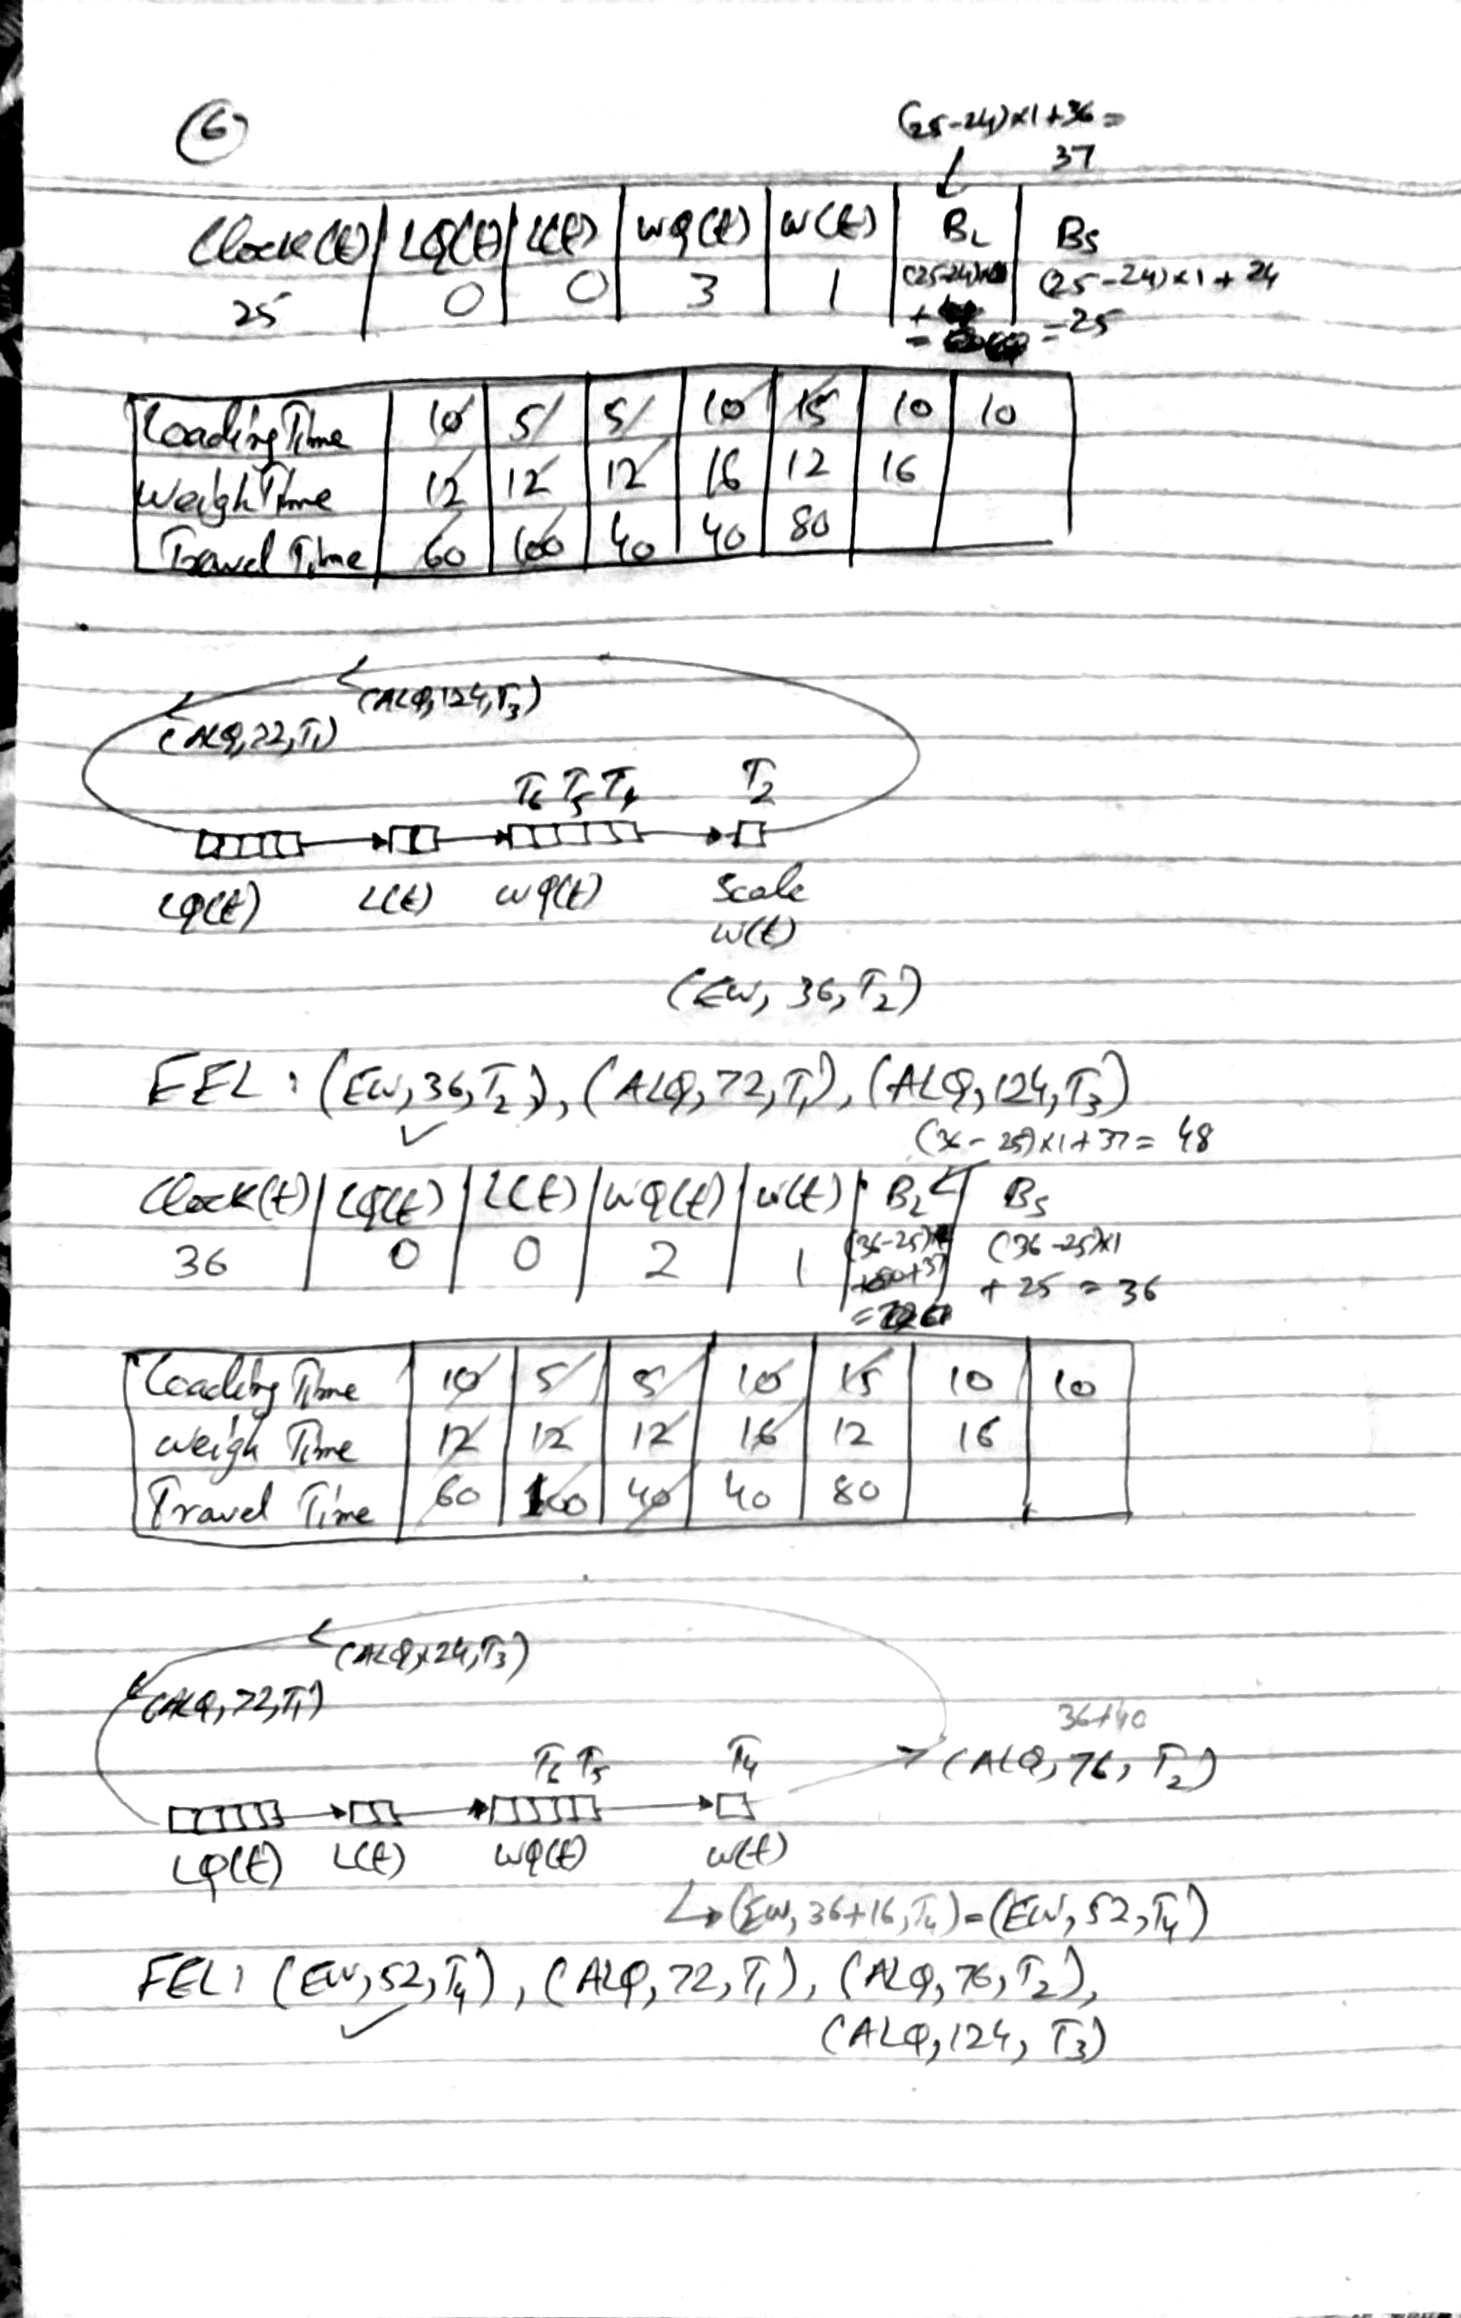 6
(25-24)×1+36=
37
Clock(t) LQ(t) L(t) WQ(t) W(t) BL BS
25 0 0 3 1 (25-24)×1 + 24
= 25
Loading Time 10 5 5 10 15 10 10
Weigh Time 12 12 12 16 12 16
Travel Time 60 100 40 40 80
(ALQ, 124, T3)
(ALQ, 72, T1)
T6 T5 T4 T2
LQ(t) L(t) WQ(t) Scale
W(t)
(EW, 36, T2)
FEL : (EW, 36, T2), (ALQ, 72, T1), (ALQ, 124, T3)
(36-25)×1+37= 48
Clock(t) LQ(t) L(t) WQ(t) W(t) BL BS
36 0 0 2 1 (36-25) (36-25)×1
+37 + 25 = 36
Loading Time 10 5 5 10 15 10 10
Weigh Time 12 12 12 16 12 16
Travel Time 60 100 40 40 80
(ALQ, 124, T3)
(ALQ, 72, T1)
36+40
T6 T5 T4 (ALQ, 76, T2)
LQ(t) L(t) WQ(t) W(t)
(EW, 36+16, T4)=(EW, 52, T4)
FEL: (EW, 52, T4), (ALQ, 72, T1), (ALQ, 76, T2),
(ALQ, 124, T3)